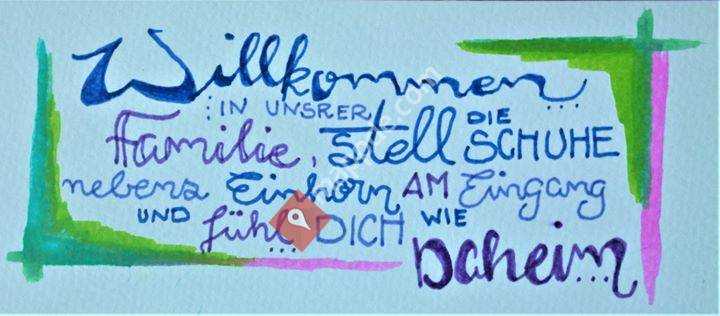 Willkommen...
...IN UNSRER
Familie, stell DIE SCHUHE
nebens Einhorn AM Eingang
UND fühl DICH WIE
Daheim...